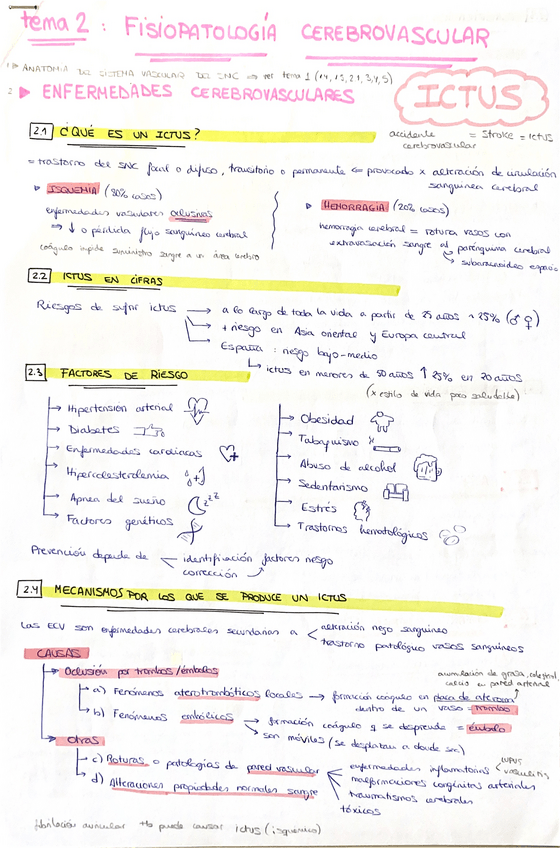 tema 2 : FISIOPATOLOGÍA CEREBROVASCULAR
1 ▶ ANATOMIA DEL SISTEMA VASCULAR DEL SNC ⇒ ver tema 1 (1.4, 1.5, 2.1, 3, 4, 5)
2 ▶ ENFERMEDADES CEREBROVASCULARES
ICTUS
2.1 ¿QUÉ ES UN ICTUS?
accidente cerebrovascular = stroke = ictus
= trastorno del SNC focal o difuso, transitorio o permanente ⇐ provocado x alteración de circulación
sanguínea cerebral
▶ ISQUEMIA (80% casos)
enfermedades vasculares oclusivas
⇒ ↓ o pérdida flujo sanguíneo cerebral
coágulo impide suministro sangre a un área cerebro
▶ HEMORRAGIA (20% casos)
hemorragia cerebral = rotura vasos con
extravasación sangre al parénquima cerebral
subaracnoideo espacio
2.2 ICTUS EN CIFRAS
Riesgos de sufrir ictus → a lo largo de toda la vida a partir de 25 años ~ 25% (♂ ♀)
→ + riesgo en Asia oriental y Europa central
→ España : riesgo bajo-medio
↳ ictus en menores de 50 años ↑ 25% en 20 años
(x estilo de vida poco saludable)
2.3 FACTORES DE RIESGO
→ Hipertensión arterial
→ Diabetes
→ Enfermedades cardiacas
→ Hipercolesterolemia
→ Apnea del sueño
zzz
→ Factores genéticos
→ Obesidad
→ Tabaquismo
→ Abuso de alcohol
→ Sedentarismo
→ Estrés
→ Trastornos hematológicos
Prevención depende de identificación factores riesgo
corrección
2.4 MECANISMOS POR LOS QUE SE PRODUCE UN ICTUS
Las ECV son enfermedades cerebrales secundarias a alteración riego sanguíneo
trastorno patológico vasos sanguíneos
CAUSAS
→ Oclusión por trombos/émbolos
acumulación de grasa, colesterol,
calcio en pared arterial
a) Fenómenos aterotrombóticos locales → formación coágulo en placa de ateroma
dentro de un vaso = trombo
b) Fenómenos embólicos → formación coágulo q se desprende = émbolo
→ son móviles (se desplazan a donde sea)
→ Otras
c) Roturas o patologías de pared vascular
d) Alteraciones propiedades normales sangre
enfermedades inflamatorias
lupus
vasculitis
malformaciones congénitas arteriales
traumatismos cerebrales
tóxicos
fibrilación auricular tb puede causar ictus (isquémico)